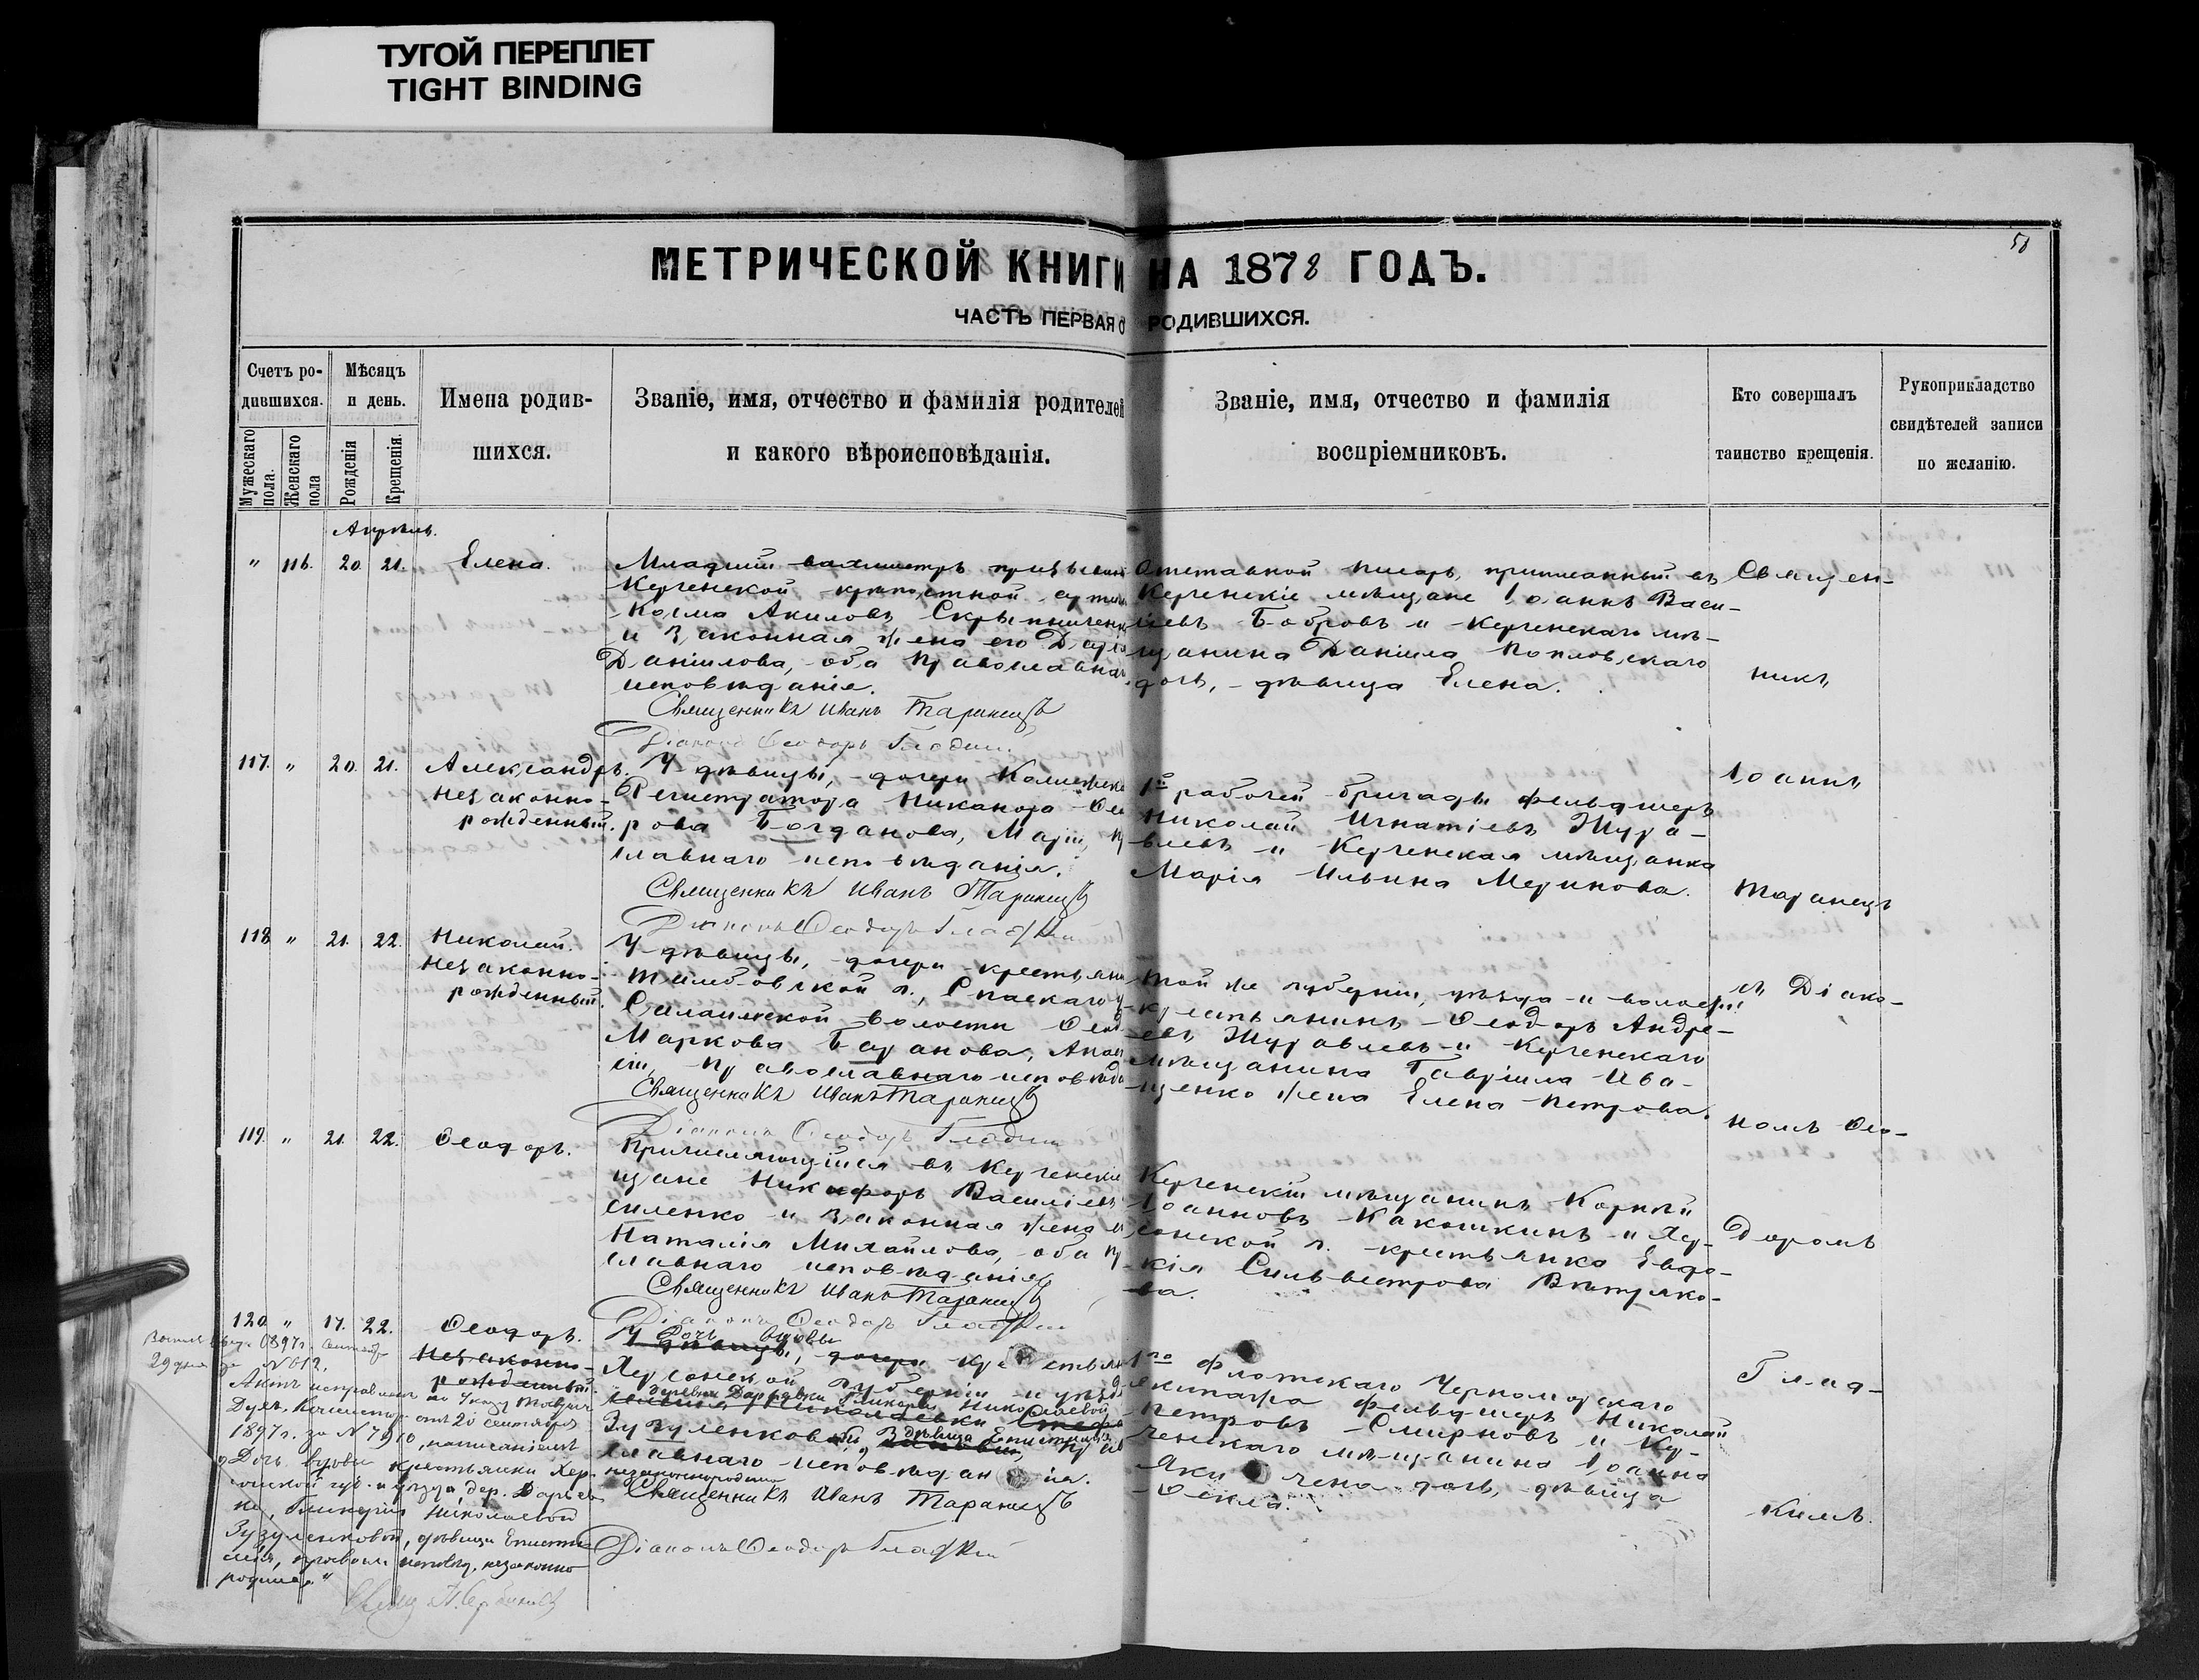 ТУГОЙ ПЕРЕПЛЕТ
TIGHT BINDING
58
МЕТРИЧЕСКОЙ КНИГИ НА 1878 ГОДЪ.
ЧАСТЬ ПЕРВАЯ О РОДИВШИХСЯ.
Счетъ ро-
дившихся.
Мужескаго пола.
Женскаго пола
Мѣсяцъ
и день.
Рожденія
Крещенія.
Имена родив-
шихся.
Званіе, имя, отчество и фамилія родителей
и какого вѣроисповѣданія.
Званіе, имя, отчество и фамилія
воспріемниковъ.
Кто совершалъ
таинство крещенія.
Рукоприкладство
свидѣтелей записи
по желанію.
Апрѣль.
" 116. 20. 21. Елена.
Младшій вахмистръ
Керченской крѣпостной
Козма Акиловъ
и законная жена его Дарія
Даніилова, оба православнаго
исповѣданія.
Священникъ Иванъ Таранецъ
Діаконъ Ѳеодоръ Гладкій
Отставной писарь, приписанный въ
Керченскіе мѣщане Іоаннъ Васи-
ліевъ Бобровъ и Керченскаго мѣ-
щанина Даніила Козловскаго
дочь, дѣвица Елена.
Священ-
никъ
117. " 20. 21. Александръ.
Незаконно-
рожденный.
У дѣвицы, дочери Коллежска
Регистратора Никанора Ѳео
рова Богданова, Маріи, п
славнаго исповѣданія.
Священникъ Иванъ Таранецъ
Діаконъ Ѳеодоръ Гладкій
1й рабочей бригады фельдшеръ
Николай Игнатіевъ Жура-
влевъ и Керченская мѣщанка
Марія Ильина Меринова.
Іоаннъ
Таранецъ
118 " 21. 22. Николай.
Незаконно-
рожденный.
У дѣвицы, дочери крестьяни
Тамбовской г., Спаскаго у
волости Ѳеод
Маркова Баранова, Анас
іи, православнаго исповѣда
Священникъ Иванъ Таранецъ
Той же губерніи, уѣзда и волости
крестьянинъ Ѳеодоръ Андре-
евъ Журавлевъ и Керченскаго
мѣщанина Гавріила Ива-
щенко жена Елена Петрова.
съ Діако-
119. " 21. 22. Ѳеодоръ.
Діаконъ Ѳеодоръ Гладкій
Причисляющійся въ Керченскіе
щане Никифоръ Василіевъ
силенко и законная жена
Наталія Михайлова, оба п
славнаго исповѣданія
Священникъ Иванъ Таранецъ
Керченскій мѣщанинъ Корнѣй
Іоанновъ Какошкинъ и Хер-
сонской г. крестьянка Евдо-
кія Сильвестрова Вѣтряко-
ва.
номъ Ѳео-
доромъ
120. " 17. 22. Ѳеодоръ.
Незаконно-
рожденный.
Діаконъ Ѳеодоръ Гладкій
Дочь вдовы
У дѣвицы, дочери крестьян
Херсонской губерніи и уѣзда
деревни Дарьевки Гликеріи Николаевой
Зузуленковой, дѣвица Епистимія
славнаго исповѣданія.
незаконнородила
Священникъ Иванъ Таранецъ
Діаконъ Ѳеодоръ Гладкій
1го флотскаго Черноморскаго
экипажа фельдшеръ Николай
Петровъ Смирновъ и Кер-
ченскаго мѣщанина Іоанна
дочь, дѣвица
Ѳекла.
Глад-
кимъ.
1897г. Сентября
29 дня за № 612.
Актъ исправленъ по Указу Таврич.
Дух. Консисторіи отъ 20 сентября
1897г. за № 7910, написаніемъ
"Дочь вдовы крестьянки Хер-
сонской губ. и уѣзда дер. Дарьев-
ки, Гликеріи Николаевой
Зузуленковой, дѣвица Еписти-
мія, правосл. исповѣд. незаконно
родила."